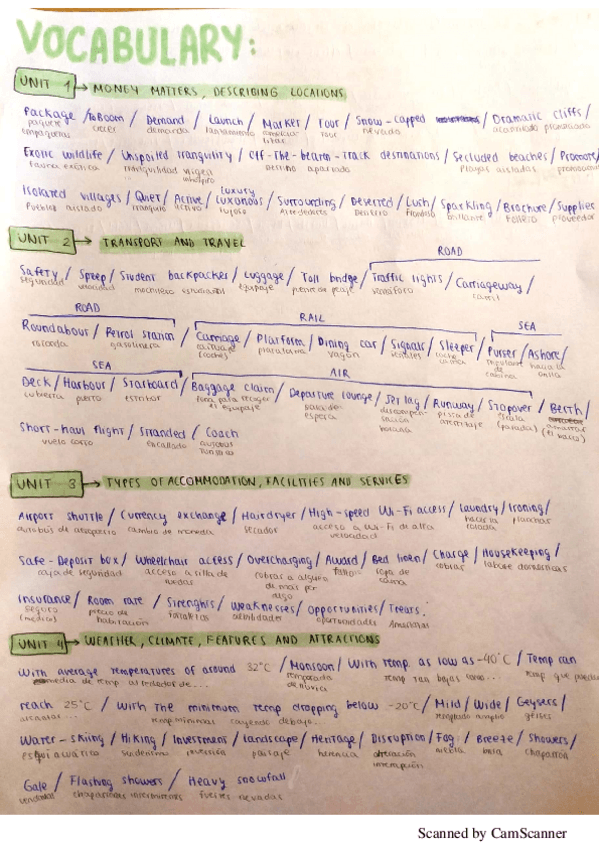 VOCABULARY:
UNIT 1 → MONEY MATTERS, DESCRIBING LOCATIONS
Package / to Boom / Demand / Launch / Market / Tour / Snow-capped / Dramatic cliffs /
paquete crecer demanda lanzamiento tour nevado acantilado
empaquetar
Exotic wildlife / Unspoiled tranquility / Off-The-bearn-Track destinations / Secluded beaches / Promote /
fauna exótica tranquilidad virgen destino apartado Playas aisladas
Isolated villages / Quiet / Active / Luxury Luxurious / Surrounding / Deserted / Lush / Sparkling / Brochure / Supplies
Pueblo aislado tranquilo activo lujoso Alrededores Desierto frondoso brillante folleto proveedor
UNIT 2 → TRANSPORT AND TRAVEL
ROAD
Safety / Speep / Student backpacker / Luggage / Toll bridge / Traffic lights / Carriageway /
seguridad velocidad mochilero equipaje peaje semáforo carril
ROAD RAIL SEA
Roundabout / Petrol station / Carriage / Platform / Dining car / Signals / Sleeper / Purser / Ashore /
rotonda gasolinera (coche) plataforma vagón señales coche cama hacia la orilla
SEA AIR
Deck / Harbour / Starboard / Baggage claim / Departure lounge / Jet lag / Runway / Stopover / Berth /
cubierta puerto estribor zona para recoger el equipaje sala de espera descompensación horaria pista de aterrizaje escala (parada) amarrar (el barco)
Short-haul flight / Stranded / Coach
vuelo corto encallado autobús turístico
UNIT 3 → TYPES OF ACCOMMODATION, FACILITIES AND SERVICES
Airport shuttle / Currency exchange / Hairdryer / High-speed Wi-Fi access / Laundry / Ironing /
autobús de aeropuerto cambio de moneda secador acceso a Wi-Fi de alta velocidad hacer la colada planchar
Safe-Deposit box / Wheelchair access / Overcharging / Award / Bed linen / Charge / Housekeeping /
caja de seguridad acceso a silla de ruedas cobrar a alguien de más por algo ropa de cama cobrar labores domésticas
Insurance / Room rate / Strenghts / Weaknesses / Opportunities / Trears.
seguro (médico) precio de habitación fortalezas debilidades oportunidades Amenazas
UNIT 4 → WEATHER, CLIMATE, FEATURES AND ATTRACTIONS
With average temperatures of around 32°C / Monsoon / With temp. as low as -40°C / Temp can
media de temp. alrededor de... temporada de lluvia temp tan bajas como... temp que puede
reach 25°C / With the minimum temp dropping below -20°C / Mild / Wide / Geysers /
alcanzar... temp mínimas cayendo debajo... templado amplio géises
Water-skiing / Hiking / Investment / Landscape / Heritage / Disruption / Fog / Breeze / Showers /
esquí acuático senderismo inversión paisaje herencia alteración interrupción niebla brisa chaparrón
Gale / Flashing showers / Heavy snowfall
vendaval chaparrones intermitentes fuertes nevadas
Scanned by CamScanner